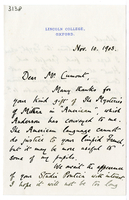 3138
LINCOLN COLLEGE,
OXFORD.
Nov. 10. 1903.
Dear Mr Cumont,
Many thanks for
your kind gift of the "Mysteries
of Mithra in American", which
Anderson has conveyed to me.
The American language cannot
do justice to your English French,
but it may be more useful to
some of my pupils.
We await the appearance
of your Studia Pontica with interest.
I hope it will not be too long